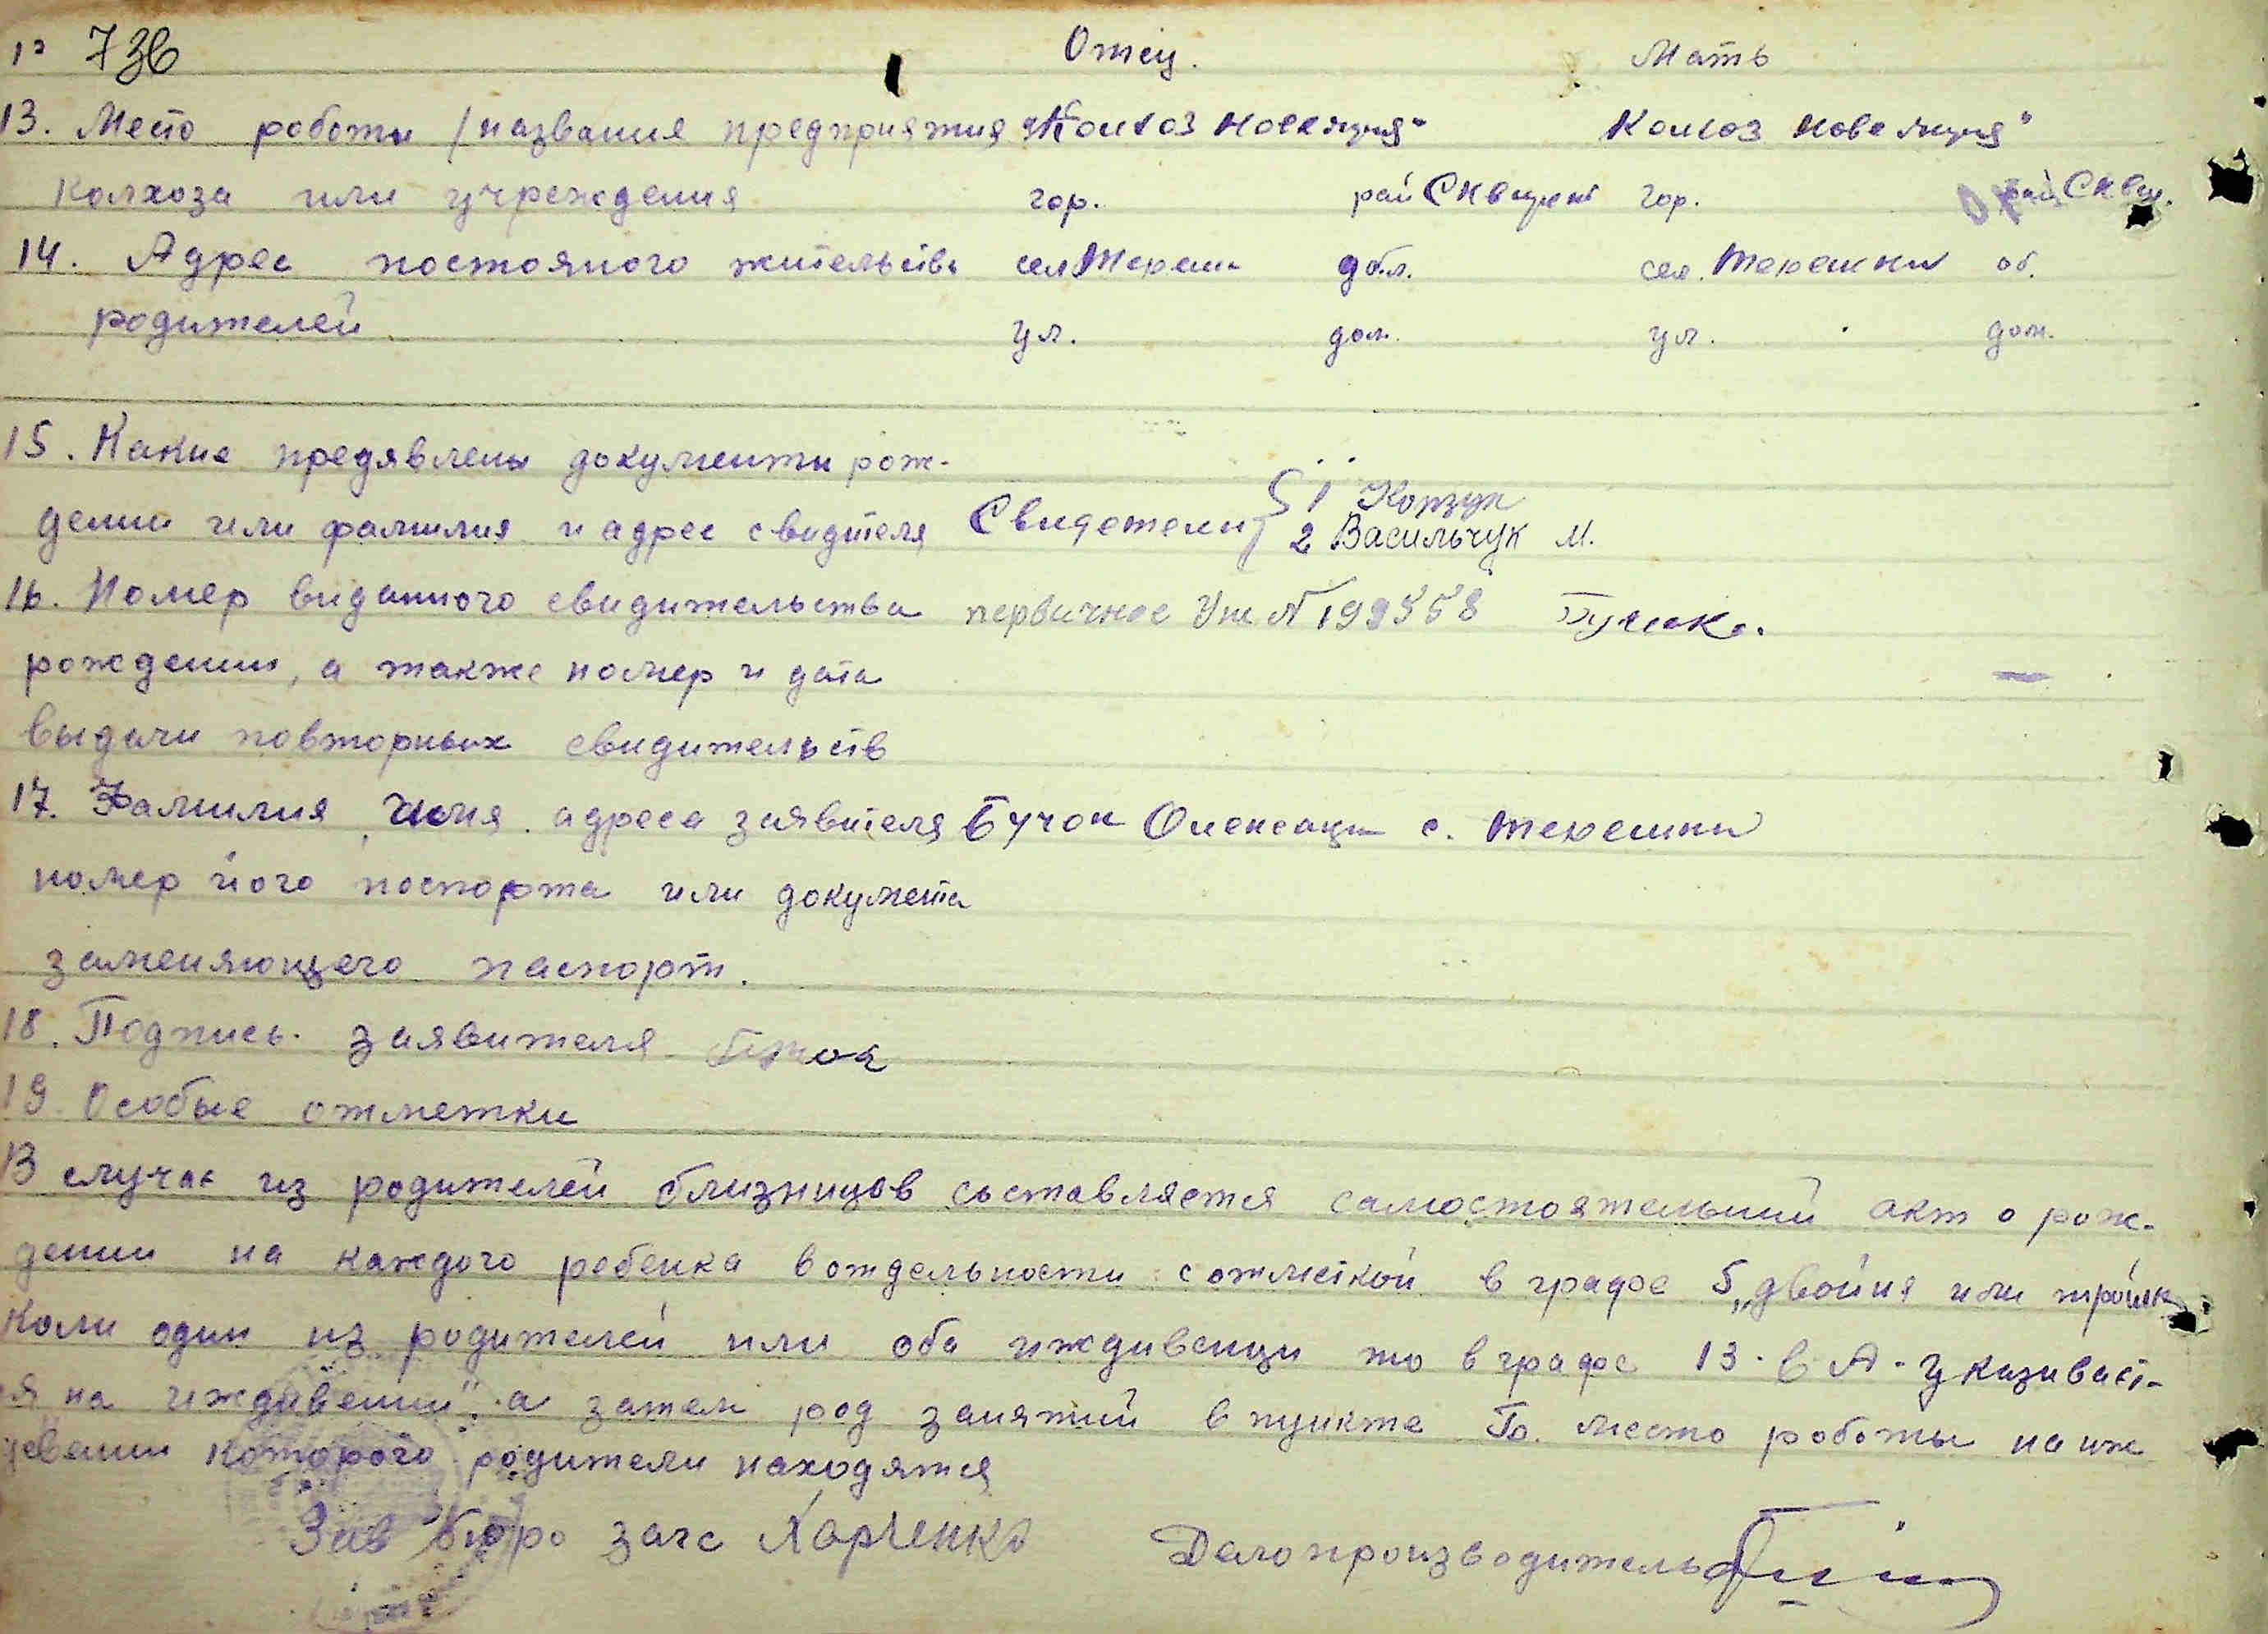 736 Отец. Мать
13. Место роботы /названия предприятия Колхоз Колхоз
колхоза или учреждения гор. рай гор. рай Сквир.
14. Адрес постояного жительства сел. обл. сел. Терешки об.
родителей ул. дом. ул. дом.
15. Какие предявлены документы рож-
дении или фамилия и адрес свидителя Свидетели 1 Корзун
2 Васильчук М.
16. Номер виданного свидительства первичное №
рождении, а также номер и дата
выдачи повторных свидительств
17. Фамилия, имя адреса заявителя Бучок с. Терешки
номер його поспорта или документа
заменяющего паспорт.
18. Подпись заявителя
19. Особые отметки
В случае из родителей близницов составляется самостоятельний акт о рож-
дении на каждого ребенка вотдельности с отметкой в графе 5 „двойня или
Коли один из родителей или оба иждивенци то в графе 13. в А - указивает-
я на иждивении", а затем род занятий в пункте место роботы на иж
девении которого родители находятся
Зав бюро загс Харченко Делопроизводитель